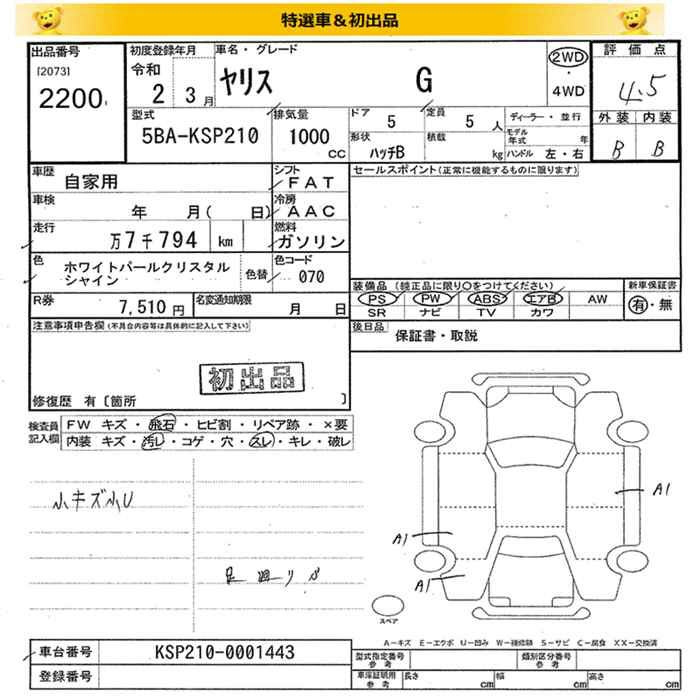 特選車＆初出品
出品番号 初度登録年月 車名・グレード
[2073] 令和 ヤリス G 2WD・4WD 評価点
2200 2 3月 4.5
型式 排気量 ドア 5 定員 5人 ディーラー・並行 外装 内装
5BA-KSP210 1000cc 形状 ハッチB 積載 kg モデル年式 年 ハンドル 左・右 B B
車歴 自家用 シフト FAT セールスポイント(正常に機能するものに限ります)
車検 年 月( 日) 冷房 AAC
走行 万7千794 km 燃料 ガソリン
色 ホワイトパールクリスタルシャイン 色替 色コード 070
装備品 (純正品に限り〇をつけてください) 新車保証書
PS PW ABS エアB AW 有・無
SR ナビ TV カワ
R券 7,510円 名変通知期限 月 日
注意事項申告欄(不具合内容等は具体的に記入して下さい) 後日品 保証書・取説
初出品
修復歴 有〔箇所 〕
検査員記入欄 FW キズ・飛石・ヒビ割・リペア跡・×要
内装 キズ・汚レ・コゲ・穴・スレ・キレ・破レ
小キズ小U
A1
A1
A1
スペア
A－キズ E－エクボ U－凹み W－補修跡 S－サビ C－腐食 XX－交換済
車台番号 KSP210-0001443
型式指定番号 参考 類別区分番号 参考
登録番号
車庫証明用 参考 長さ cm 幅 cm 高さ cm